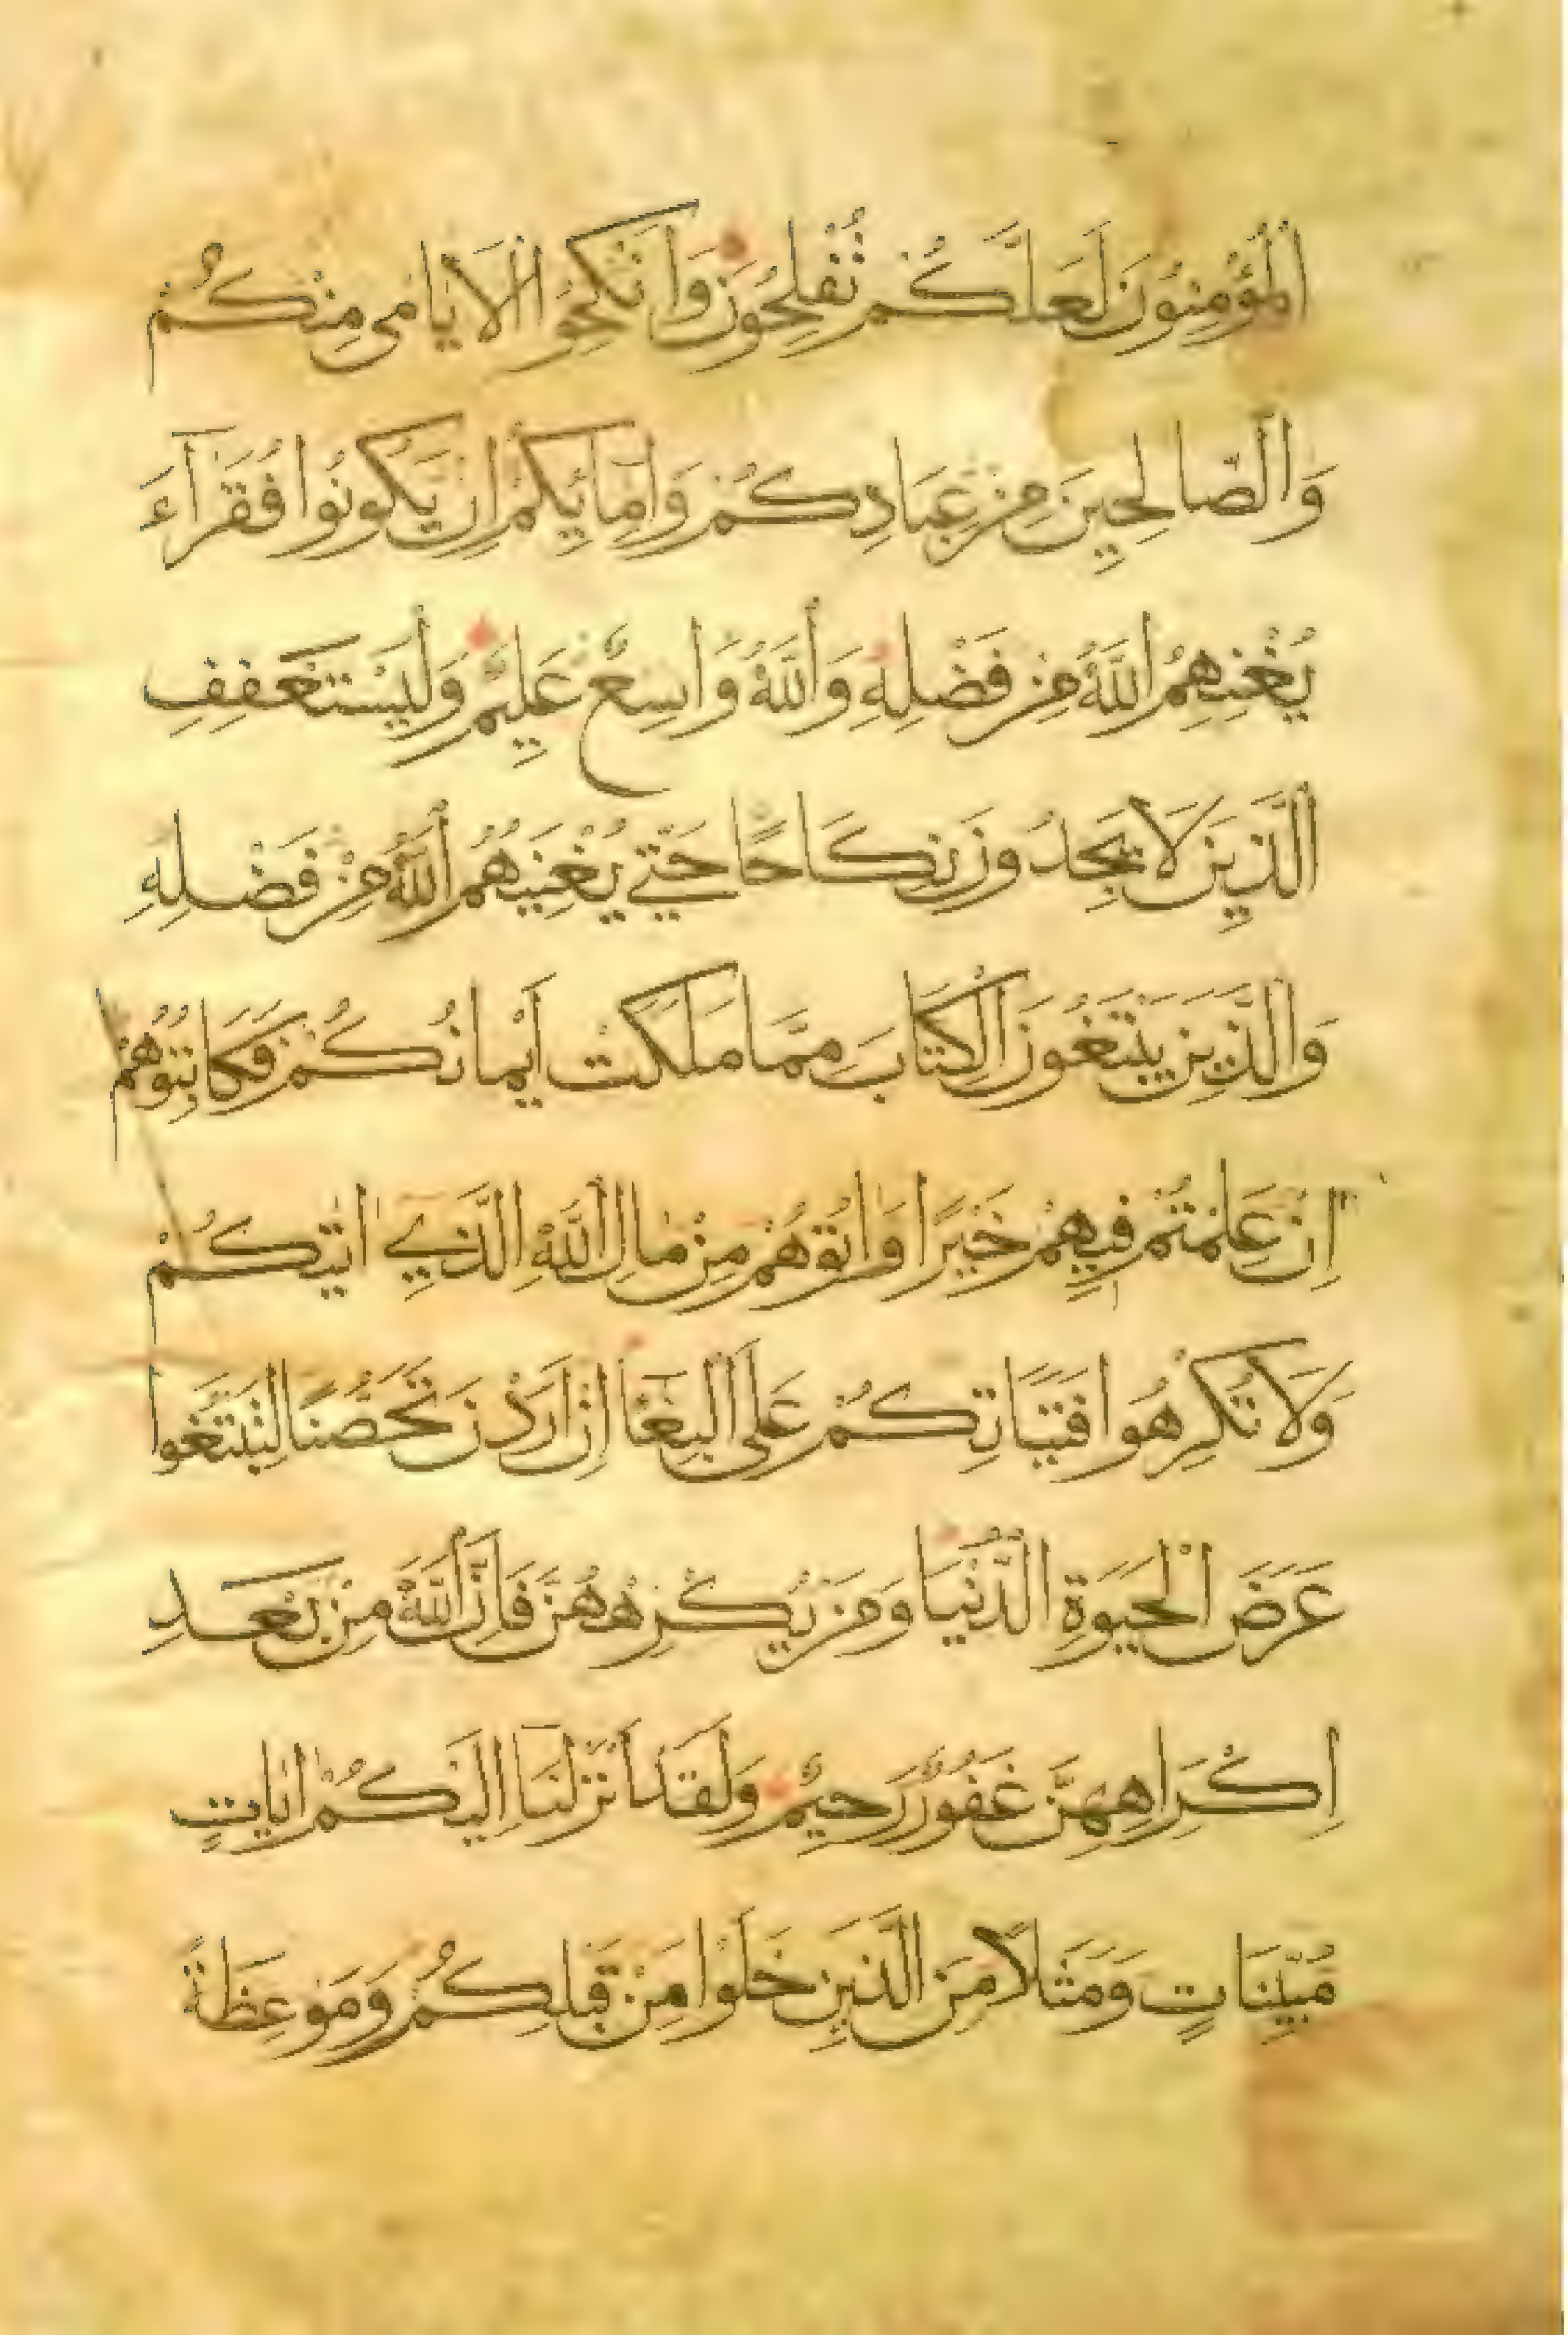 الْمُؤْمِنُونَ لَعَلَّكُمْ تُفْلِحُونَ وَانْكِحُوا الْاَيَامٰى مِنْكُمْ
وَالصَّالِحِينَ مِنْ عِبَادِكُمْ وَاِمَائِكُمْ اِنْ يَكُونُوا فُقَرَآءَ
يُغْنِهِمُ اللّٰهُ مِنْ فَضْلِهِ وَاللّٰهُ وَاسِعٌ عَلِيمٌ وَلْيَسْتَعْفِفِ
الَّذِينَ لَا يَجِدُونَ نِكَاحًا حَتّٰى يُغْنِيَهُمُ اللّٰهُ مِنْ فَضْلِهِ
وَالَّذِينَ يَبْتَغُونَ الْكِتَابَ مِمَّا مَلَكَتْ اَيْمَانُكُمْ فَكَاتِبُوهُمْ
اِنْ عَلِمْتُمْ فِيهِمْ خَيْرًا وَاٰتُوهُمْ مِنْ مَالِ اللّٰهِ الَّذِي اٰتٰيكُمْ
وَلَا تُكْرِهُوا فَتَيَاتِكُمْ عَلَى الْبِغَآ اِنْ اَرَدْنَ تَحَصُّنًا لِتَبْتَغُوا
عَرَضَ الْحَيٰوةِ الدُّنْيَا وَمَنْ يُكْرِهْهُنَّ فَاِنَّ اللّٰهَ مِنْ بَعْدِ
اِكْرَاهِهِنَّ غَفُورٌ رَحِيمٌ وَلَقَدْ اَنْزَلْنَا اِلَيْكُمْ اٰيَاتٍ
مُبَيِّنَاتٍ وَمَثَلًا مِنَ الَّذِينَ خَلَوْا مِنْ قَبْلِكُمْ وَمَوْعِظَةً